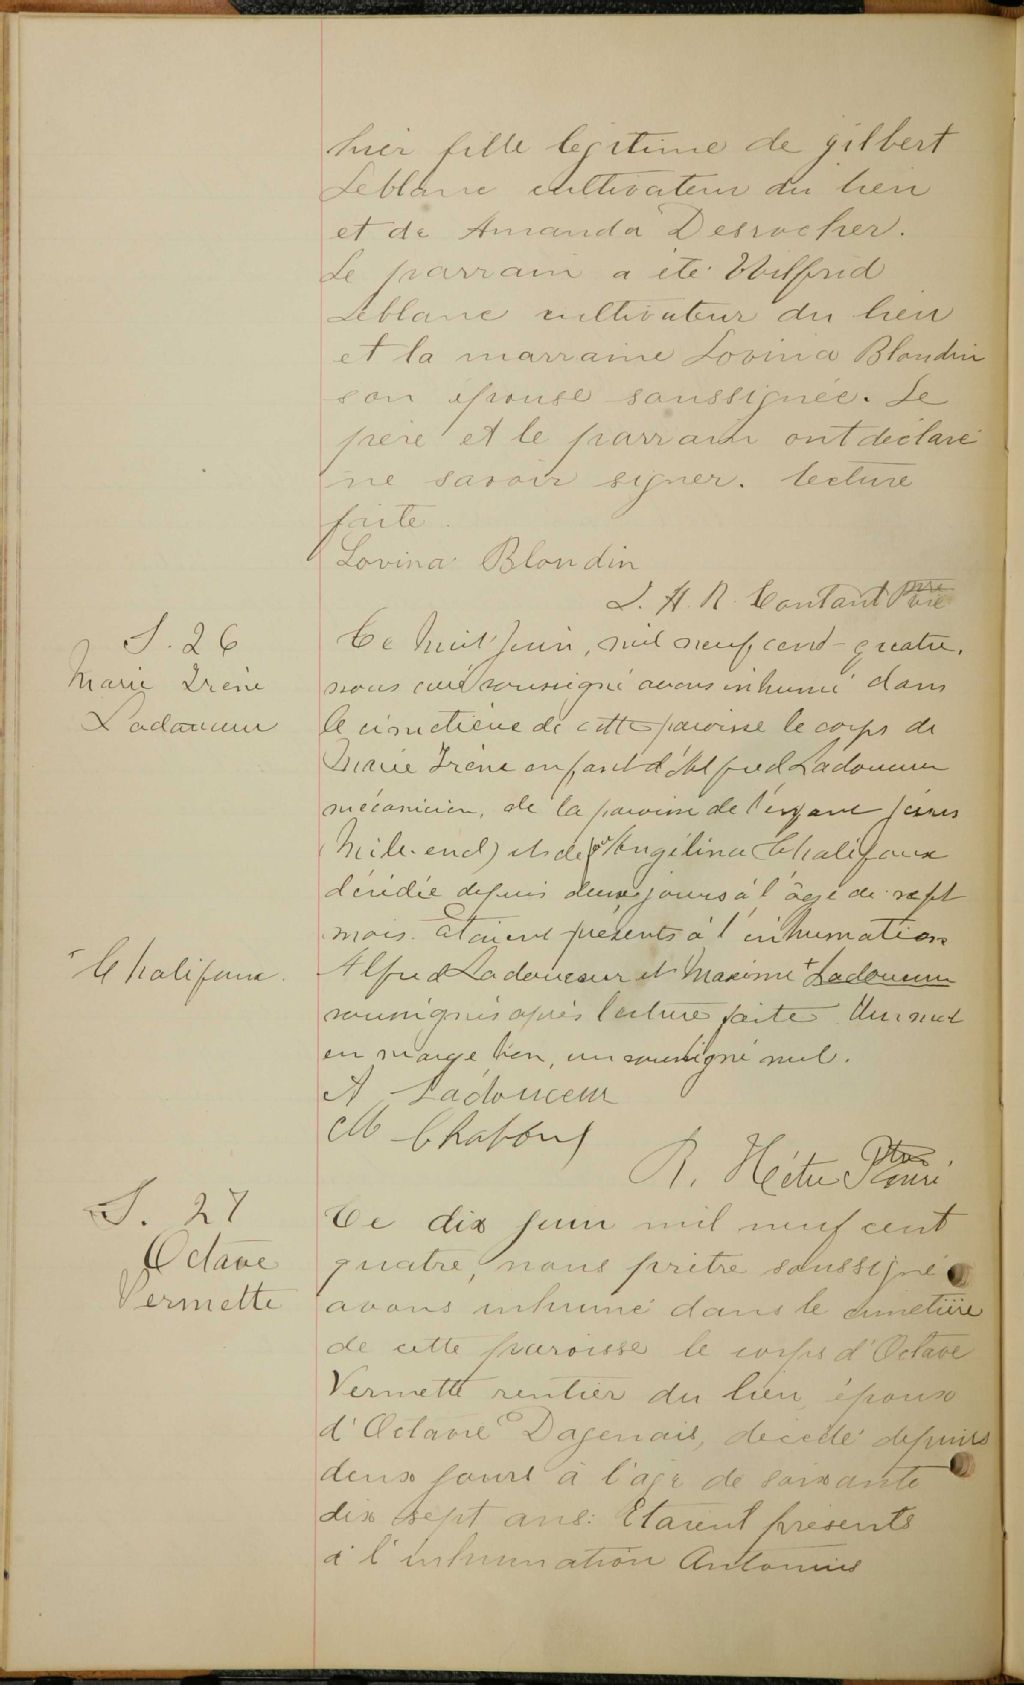 hier fille legitime de gilbert
Leblanc cultivateur du lieu
et de Amanda Desrocher.
Le parrain a été Wilfrid
Leblanc cultivateur du lieu
et la marraine Lovina Blondin
son épouse soussignée. Le
père et le parrain ont déclaré
ne savoir signer. lecture
faite.
Lovina Blondin
L. A. R. Contant Ptre
S. 26
Marie Irène
Ladouceur
Ce huit Juin, mil neuf cent-quatre,
nous curé soussigné avons inhumé dans
le cimetière de cette paroisse le corps de
Marie Irène enfant d'Alfred Ladouceur
mécanicien, de la paroisse de l'enfant Jésus
(Mile-end) et de Angélina Chalifoux
décédée depuis deux jours à l'âge de sept
mois. Etaient présents à l'inhumation
Chalifoux.
Alfred Ladouceur et Maxime + Ladouceur
soussignés après lecture faite. Un mot
en marge bon, un soussigné nul.
A Ladouceur
M Chalifoux
R. Hétu Ptre Curé
S. 27
Octave
Vermette
Ce dix juin mil neuf cent
quatre, nous prêtre soussigné
avons inhumé dans le cimetière
de cette paroisse le corps d'Octave
Vermette rentier du lieu, époux
d'Octavie Dagenais, décédé depuis
deux jours à l'age de soixante
dix sept ans: Etaient présents
à l'inhumation Antonius